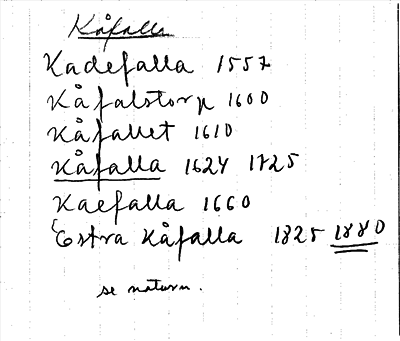 Kåfalla
Kadefalla 1557
Kåfalstorp 1600
Kåfallet 1610
Kåfalla 1624 1725
Kaefalla 1660
Östra Kåfalla 1825 1880
se naturn.